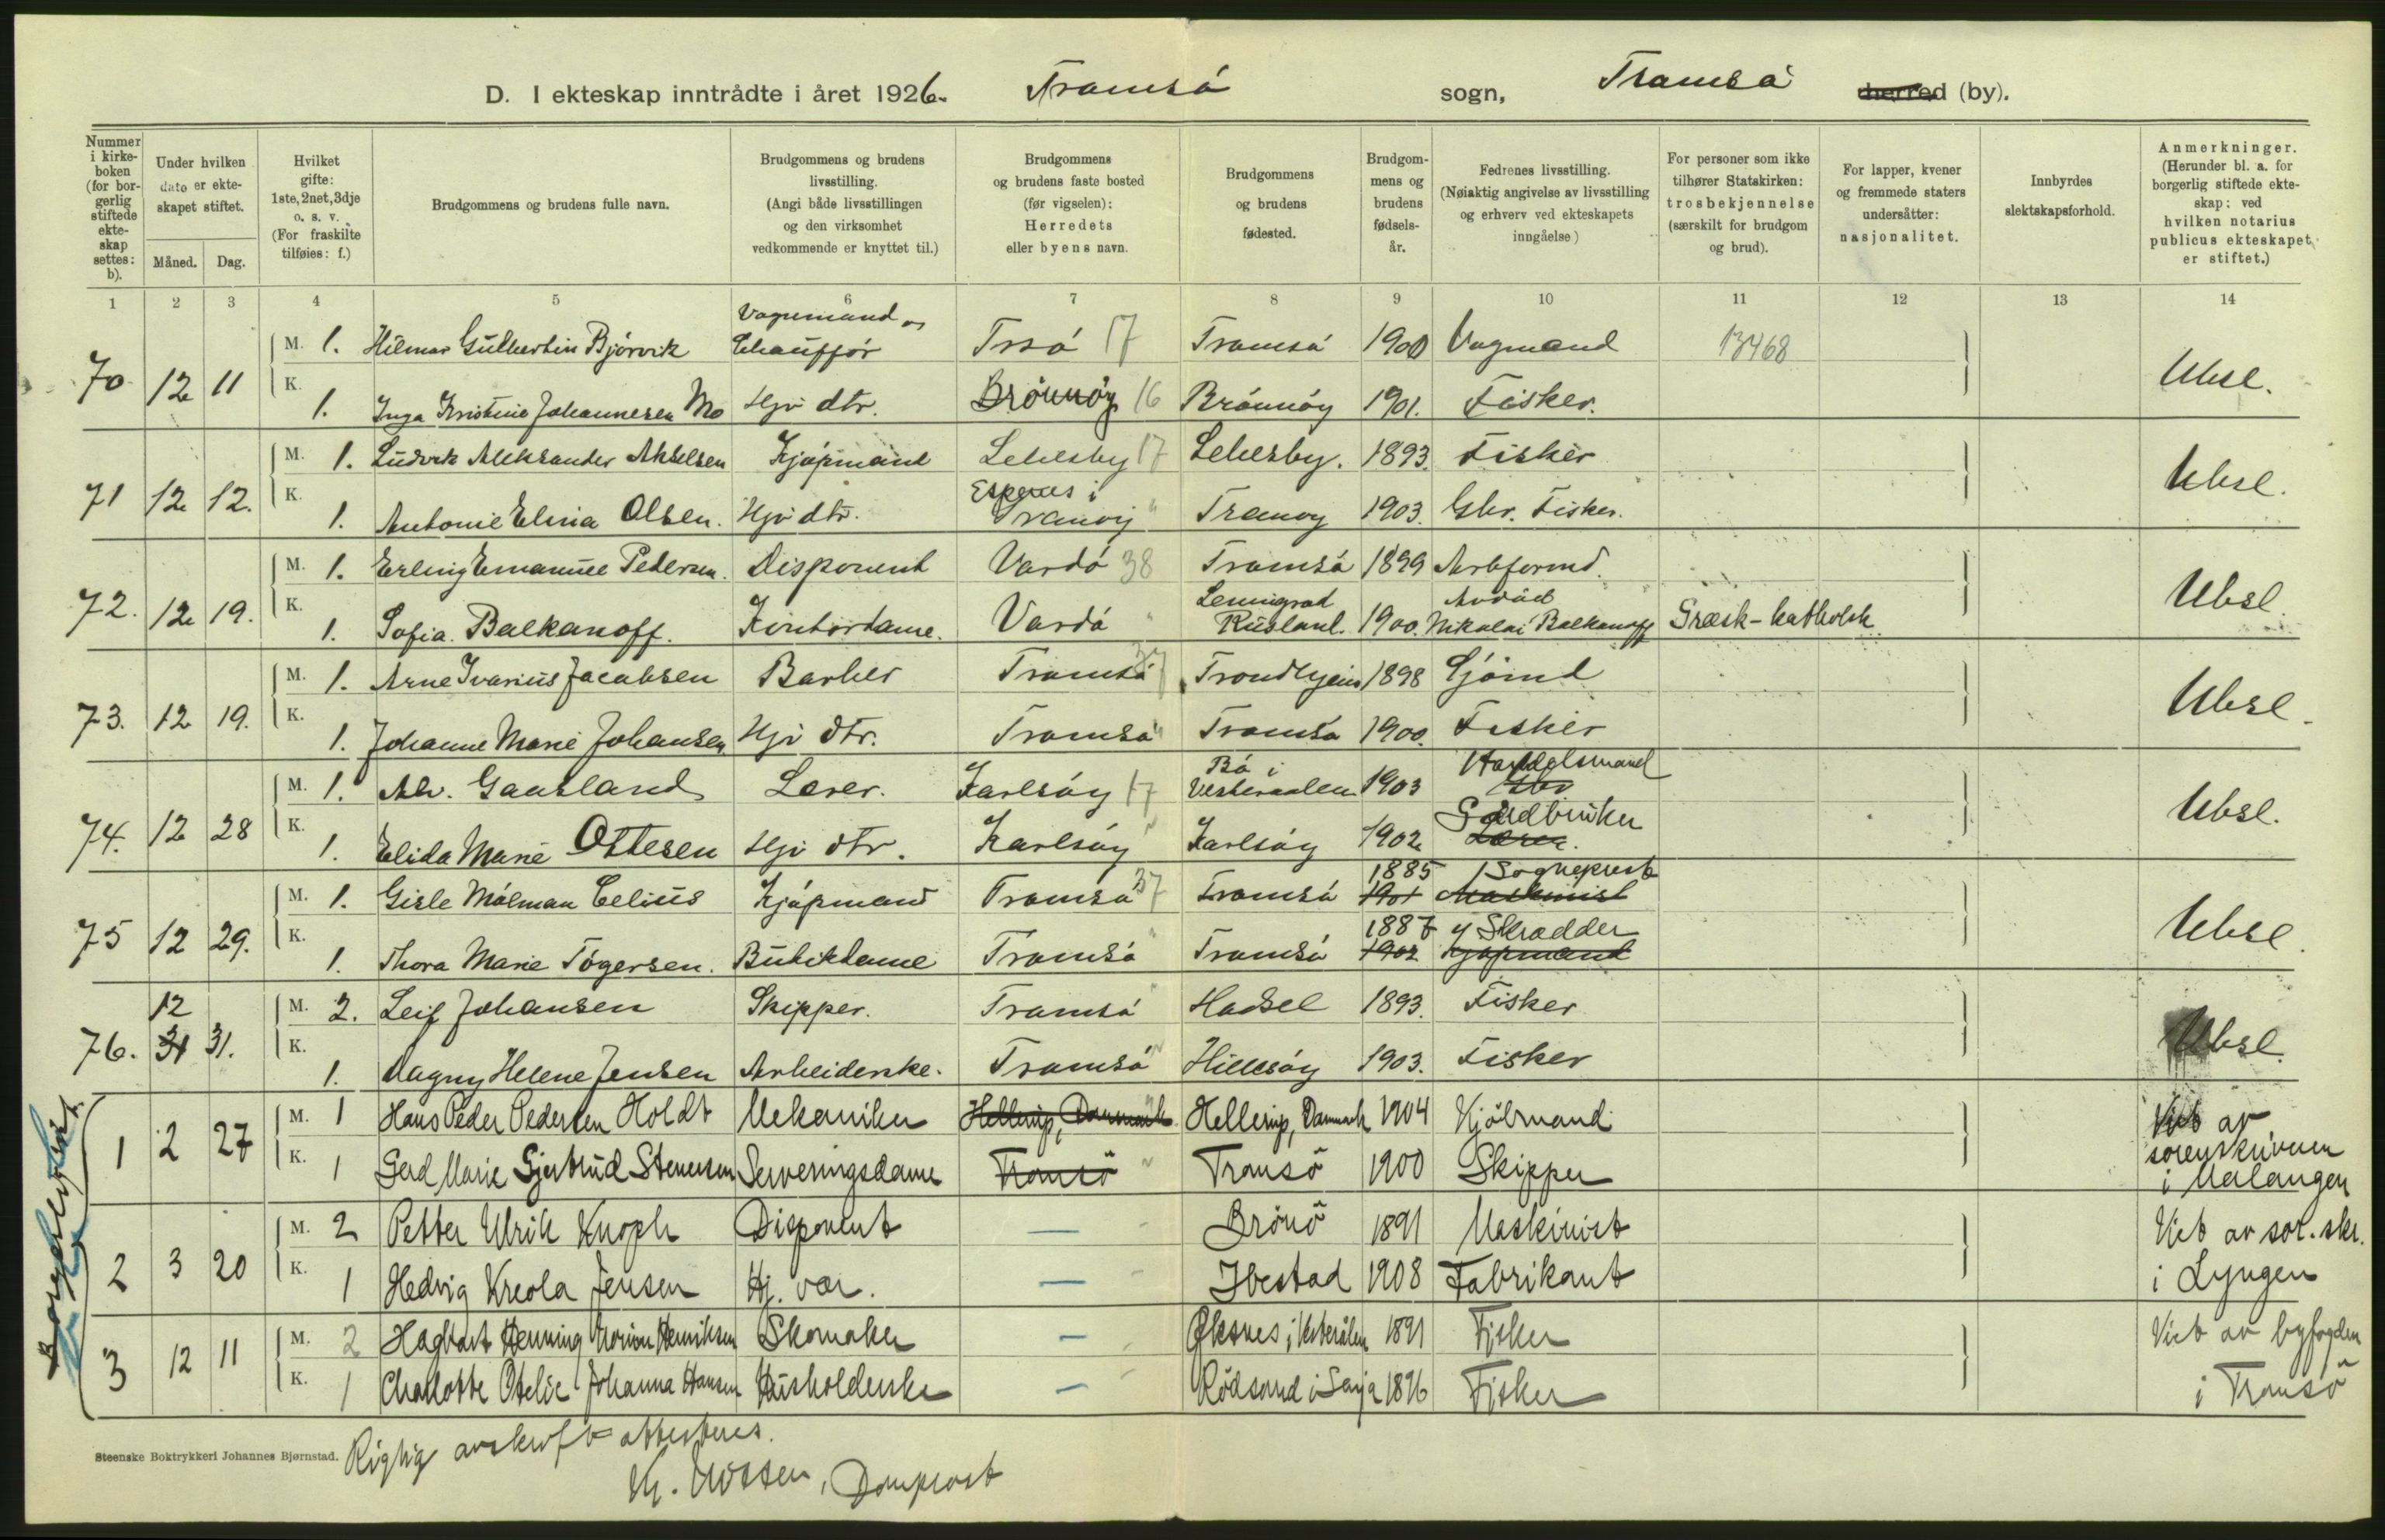 D. I ekteskap inntrådte i året 1926. Tromsø sogn, Tromsø herred (by).
Nummer i kirkeboken (for borgerlig stiftede ekteskap settes: b).
Under hvilken dato er ekteskapet stiftet.
Måned. Dag.
Hvilket gifte: 1ste, 2net, 3dje o. s. v. (For fraskilte tilføies: f.)
Brudgommens og brudens fulle navn.
Brudgommens og brudens livsstilling. (Angi både livsstillingen og den virksomhet vedkommende er knyttet til.)
Brudgommens og brudens faste bosted (før vigselen): Herredets eller byens navn.
Brudgommens og brudens fødested.
Brudgommens og brudens fødselsår.
Fedrenes livsstilling. (Nøiaktig angivelse av livsstilling og erhverv ved ekteskapets inngåelse)
For personer som ikke tilhører Statskirken: trosbekjennelse (særskilt for brudgom og brud).
For lapper, kvener og fremmede staters undersåtter: nasjonalitet.
Innbyrdes slektskapsforhold.
Anmerkninger. (Herunder bl. a. for borgerlig stiftede ekteskap: ved hvilken notarius publicus ekteskapet er stiftet.)
1 2 3 4 5 6 7 8 9 10 11 12 13 14
70 12 11 M. 1. Hilmar Bjørvik Vognmand og Chauffør Trsø 17 Tromsø 1900 Vognmand 13468 Ubsl.
K. 1. Inga Kristine Johannesen Mo Hjv dtr. Brønnøy 16 Brønnøy 1901. Fisker.
71 12 12. M. 1. Ludvik Aleksander Akselsen Kjøpmand Lebesby 17 Lebesby. 1893. Fisker Ubsl.
K. 1. Antonie Elina Olsen. Hjv dtr. Espenes i Tranøy " Tranøy 1903. Gbr. Fisker.
72. 12 19. M. 1. Erling Emanuel Pedersen. Disponent Vardø 38 Tromsø 1899 Arbformd. Ubsl.
K. 1. Sofia Balkanoff. Kontordame. Vardø " Leningrad Rusland. 1900. Nikolai Balkanoff Græsk-katholsk
73. 12 19. M. 1. Arne Ivarius Jacobsen Barber Tromsø 37 Trondhjem 1898 Sjømd Ubsl.
K. 1. Johanne Marie Johansen Hjv dtr. Tromsø " Tromsø 1900. Fisker
74. 12 28 M. 1. Alv. Gausland Lærer. Karlsøy 17 Bø i Vesteraalen 1903 Handelsmand Ubsl.
K. 1. Elida Marie Ottesen Hjv dtr. Karlsøy " Karlsøy 1902 Gaardbruker Lærer.
75 12 29. M. 1. Gisle Mølman Celius Kjøpmand Tromsø 37 Tromsø 1885 1901 Sogneprest Maskinist Ubsl.
K. 1. Thora Marie Tøgersen. Butikdame Tromsø " Tromsø 1887 1902 Skrædder Kjøpmand
76. 12 31 31. M. 2. Leif Johansen Skipper. Tromsø " Hadsel 1893. Fisker Ubsl.
K. 1. Dagny Helene Jensen Arbeiderske. Tromsø " Hillesøy 1903. Fisker
Borgerlig viet.
1 2 27 M. 1 Hans Peder Pedersen Holdt Mekaniker Hellerup, Danmark Hellerup, Danmark 1904 Kjølmand Viet av sorenskriveren i Malangen
K. 1 Gerd Marie Gjertrud Stenersen Serveringsdame Tromsö " Tromsö 1900 Skipper
2 3 20 M. 2 Petter Ulrik Knoph Disponent — Brönö 1891 Maskinist Viet av sor. skr. i Lyngen
K. 1 Hedvig Kreola Jensen Hj. vær. — Ibestad 1908 Fabrikant
3 12 11 M. 2 Hagbart Henning Henriksen Skomaker — Øksnes i Vesterålen 1891 Fisker Viet av byfogden i Tromsö
K. 1 Charlotte Otelie Johanna Hansen Husholderske — Rödsand i Senja 1896 Fisker
Steenske Boktrykkeri Johannes Bjørnstad.
Rigtig avskrift attesteres.
Kr. Nissen, Domprost